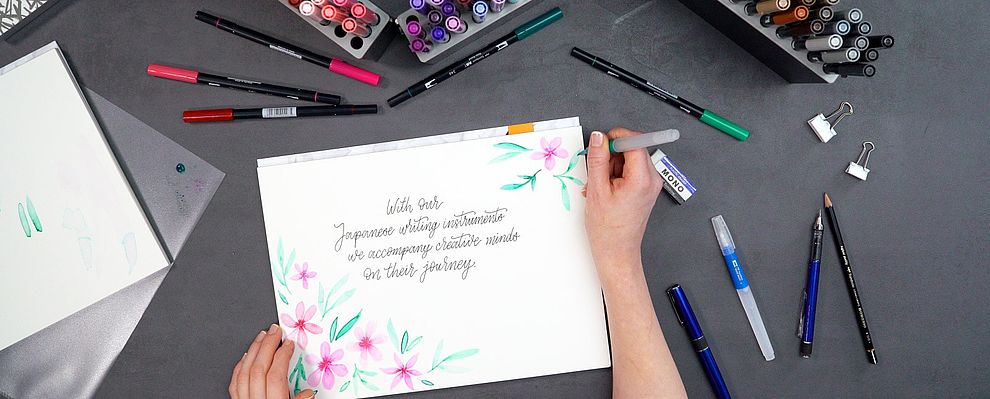 With our
Japanese writing instruments
we accompany creative minds
on their journey.
MONO